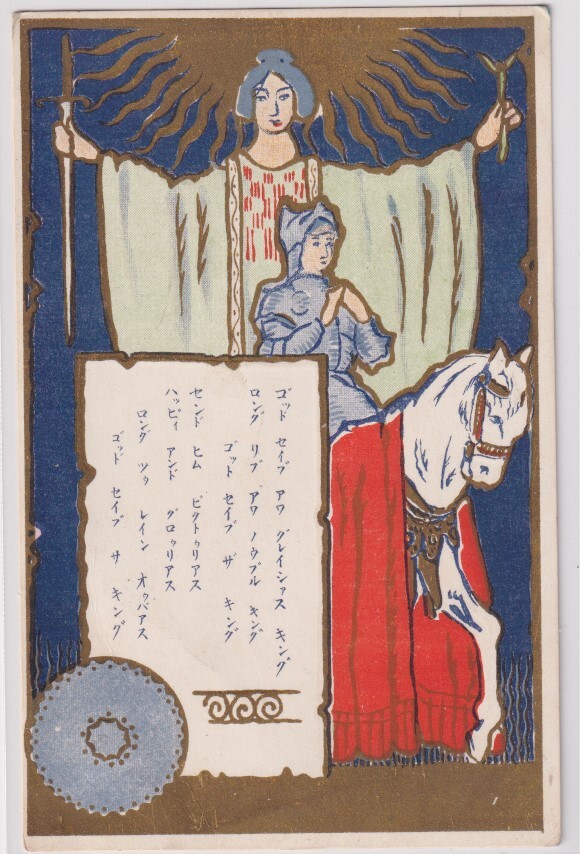 ゴッド セイブ アワ グレイシァス キング
ロング リブ アワ ノウブル キング
ゴット セイブ ザ キング
センド ヒム ビクトゥリアス
ハッピィ アンド グロゥリアス
ロング ツゥ レイン オゥバアス
ゴッド セイブ ザ キング